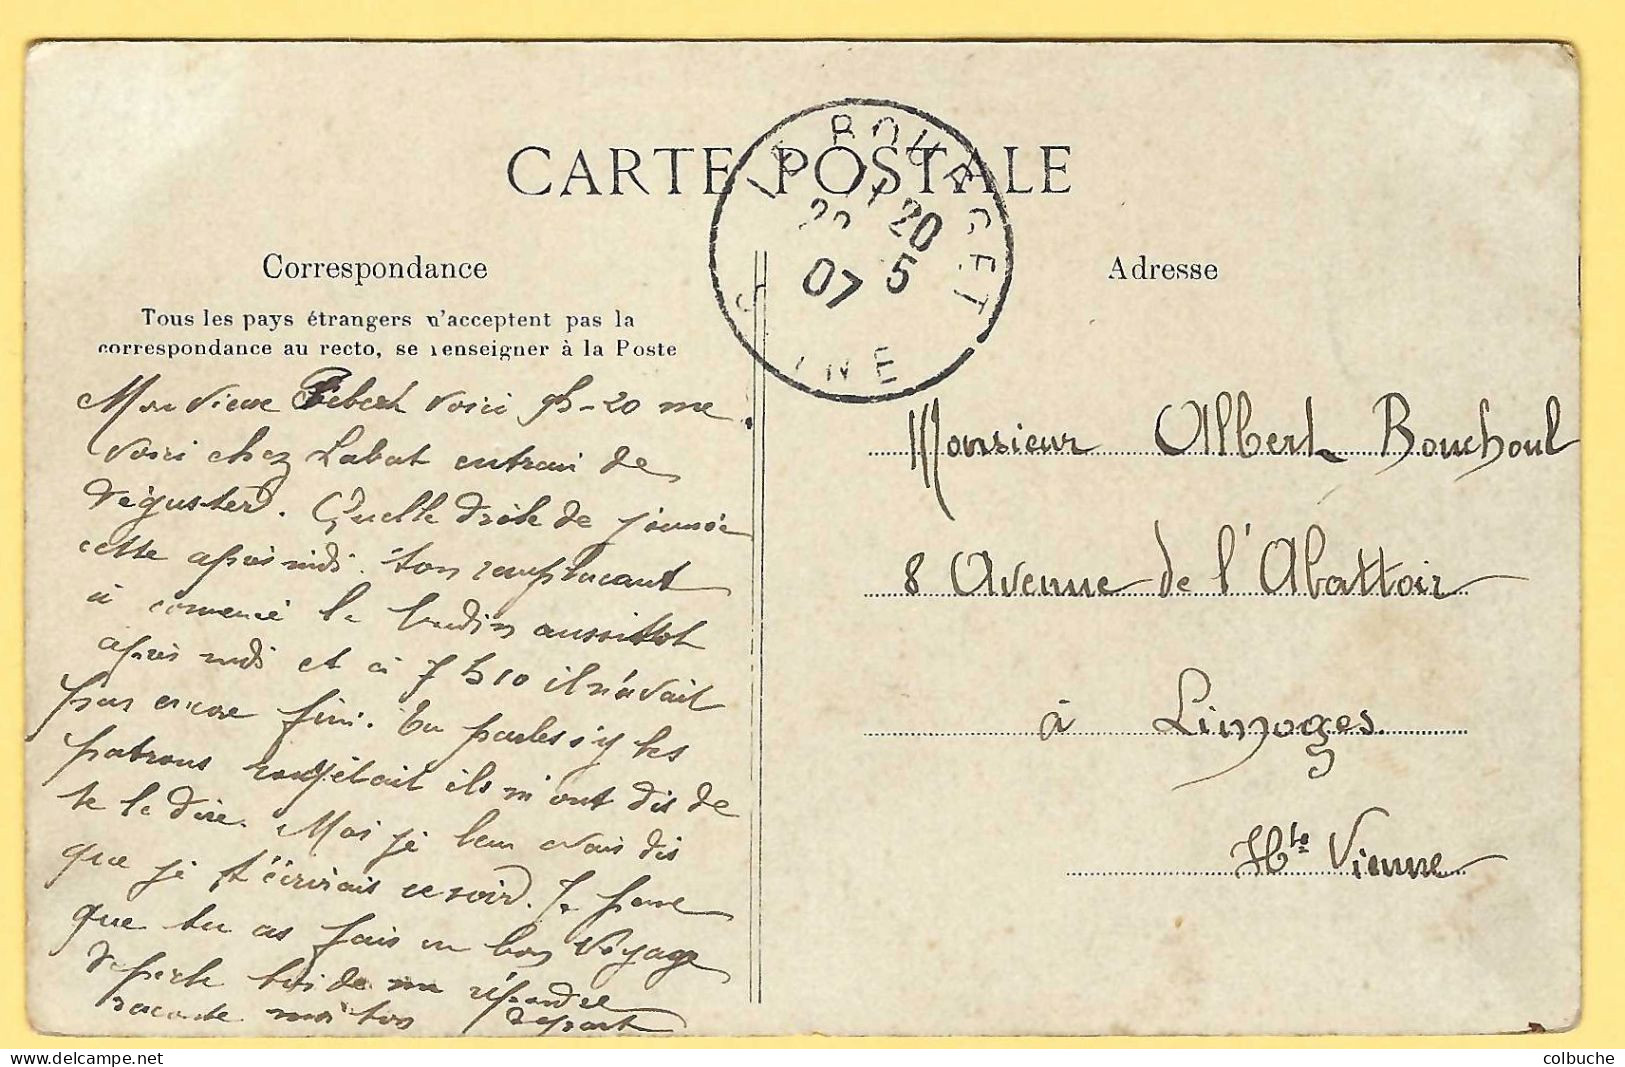 CARTE POSTALE
LE BOURGET
20
07 5
INE
Correspondance
Tous les pays étrangers n'acceptent pas la
correspondance au recto, se renseigner à la Poste
Mon vieux Bebert voici 9h-20 me
voici chez Labat entrain de
déguster. Quelle drôle de journée
cette après midi. ton remplacant
à comencé le boudin aussitôt
après midi et à 7h10 il n'avait
pas encore fini. Tu parles s'y les
patrons rouspétait ils m'ont dis de
te le dire. Moi je leur avais dis
que je t'écrivais ce soir. Je pense
que tu as fais un bon voyage
depeche toi de me répondre
raconte moi ton depart
Adresse
Monsieur Albert Bouchoul
8 Avenue de l'Abattoir
à Limoges.
Hte Vienne
colbuche